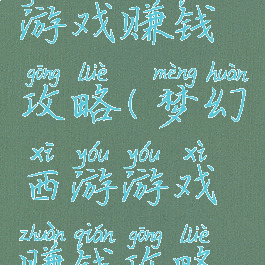 游戏赚钱
gōng lüè mèng huàn
攻略(梦幻
xī yóu yóu xì
西游游戏
zhuàn qián gōng lüè
赚钱攻略